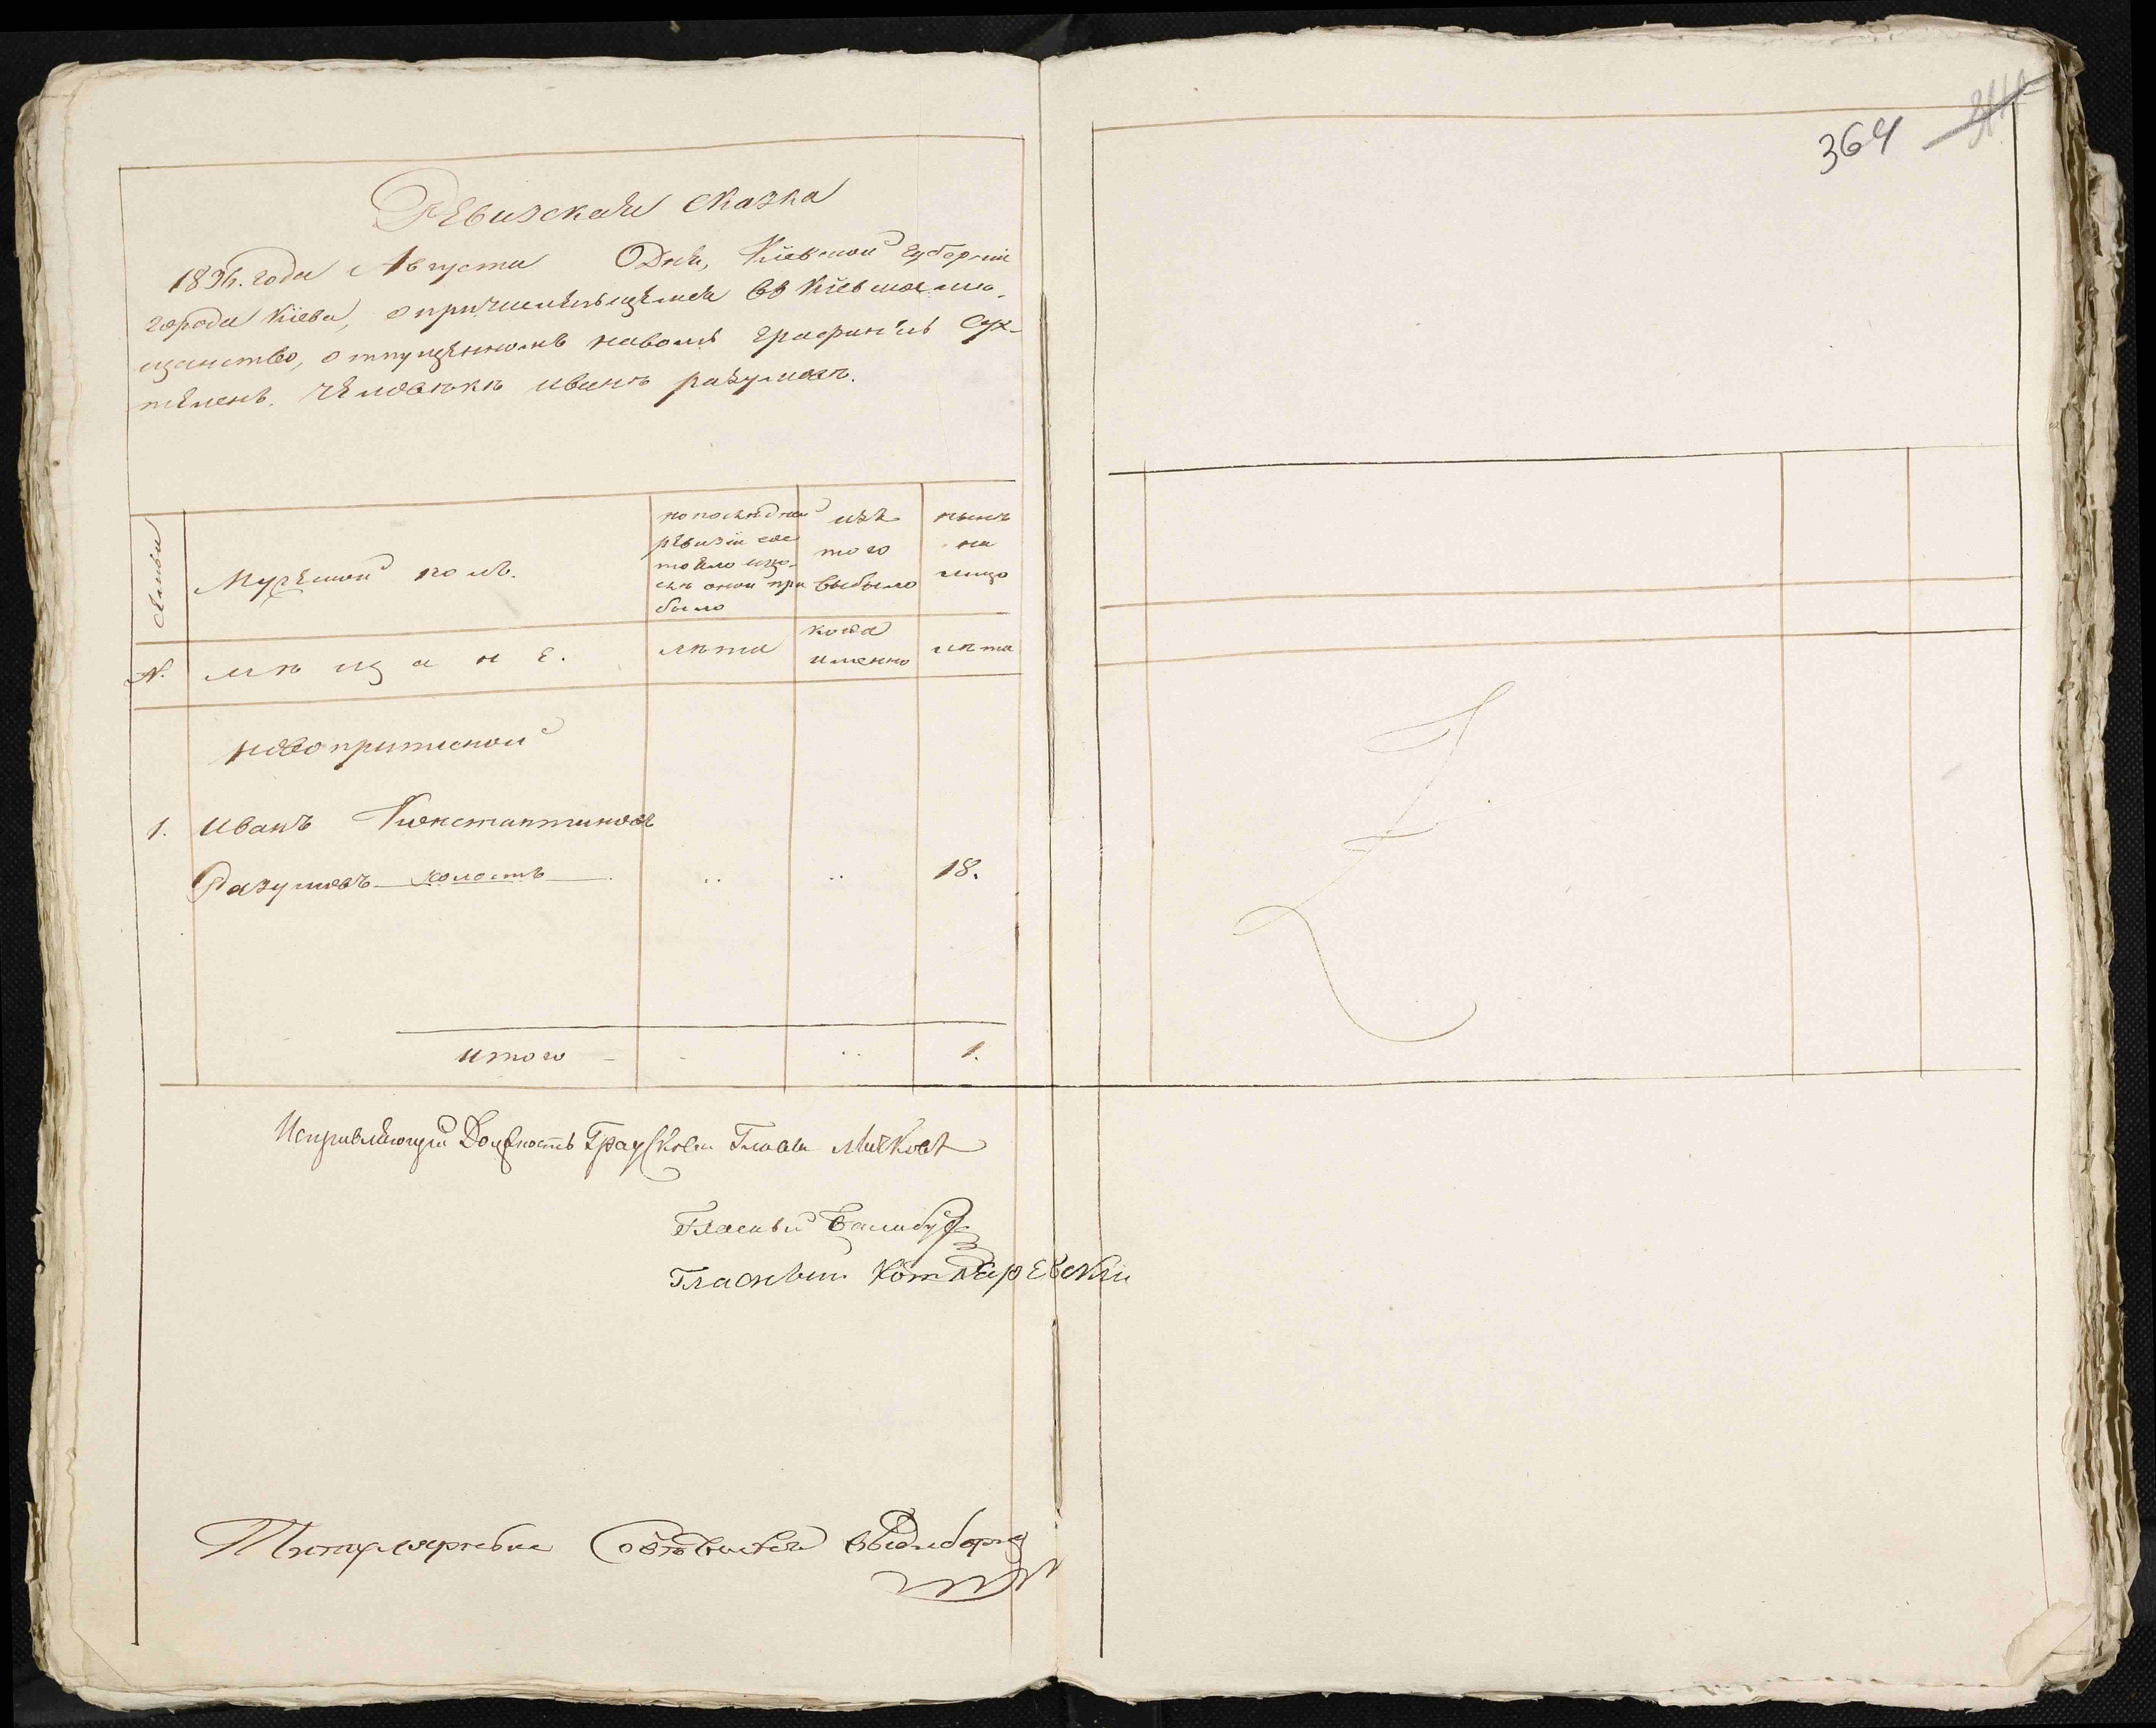 364
Ревизская сказка
1836. года Августа Дня, Кіевской Губерніи
города Кіева, о причислившемся въ Кіевское мѣ-
щанство, отпущенномъ на волю графинею
человѣкѣ иванѣ разумовѣ.
семьи
Мужеской полъ.
по последней
ревизіи сос
тояло и по-
слѣ оной при
было
изъ
того
выбыло
нынѣ
на
лицо
№.
мѣщане.
лѣта
когда
именно
лѣта
новоприписной
1. Иванъ Константиновъ
Разумовъ холостъ .. .. 18.
итого - - .. 1.
Исправляющій Должность Градской Главы
Гласный
Гласный Котляревскій
Титулярный Совѣтникъ